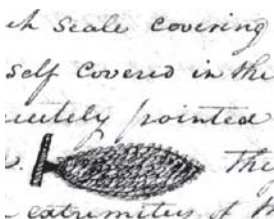 ch scale covering
self covered in the
utely pointed
. The
extremities of